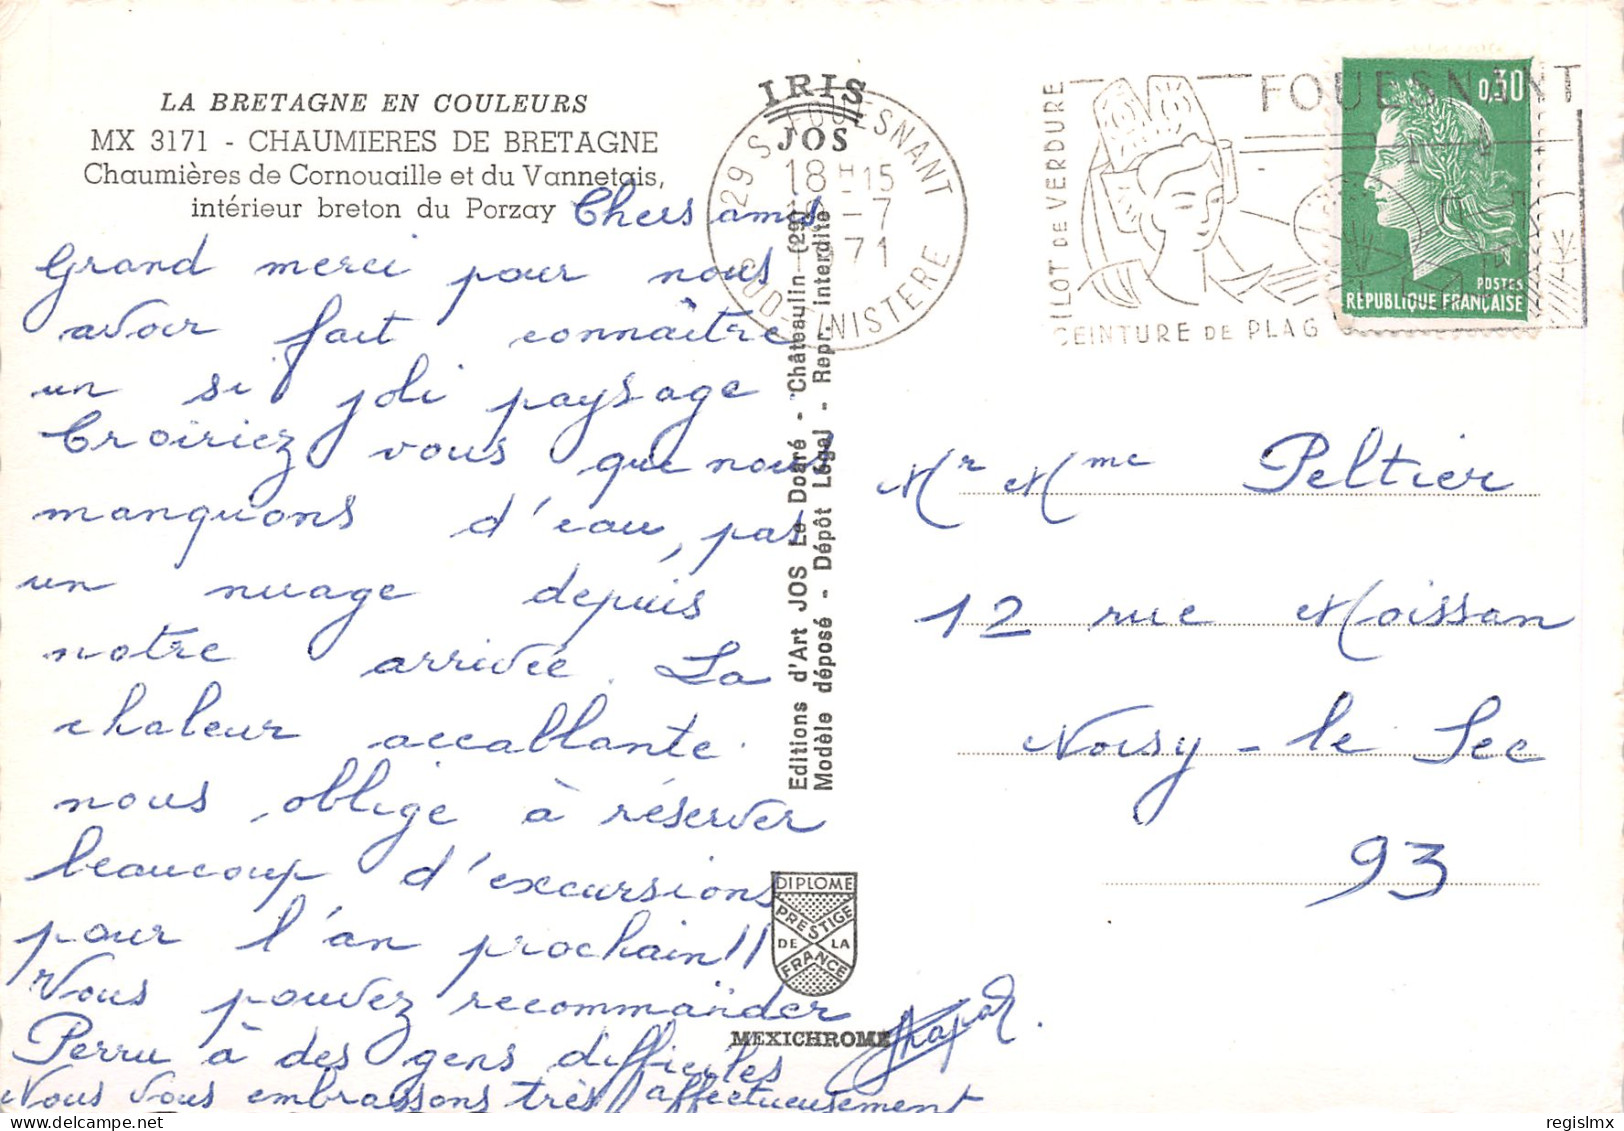 LA BRETAGNE EN COULEURS
MX 3171 - CHAUMIERES DE BRETAGNE
Chaumières de Cornouaille et du Vannetais,
intérieur breton du Porzay
Chers amis
Grand merci pour nous
avoir fait connaître
un si joli paysage
Croiriez vous que nous
manquons d'eau, pas
un nuage depuis
notre arrivée. La
chaleur accablante
nous oblige à réserver
beaucoup d'excursions
pour l'an prochain !!
Vous pouvez recommander
Perru à des gens difficiles
Nous vous embrassons très affectueusement
IRIS
JOS
Editions d'Art JOS Le Doaré - Châteaulin (29)
Modèle déposé - Dépôt Légal - Repr. interdite
DIPLOME
PRESTIGE
DE LA
FRANCE
MEXICHROME
29 S FOUESNANT
18 H 15
-7
1971
SUD-FINISTERE
FOUESNANT
ILOT DE VERDURE
CEINTURE DE PLAG
0,30
POSTES
REPUBLIQUE FRANÇAISE
Mr Mme Peltier
12 rue Moissan
Noisy-le Sec
93
regislmx